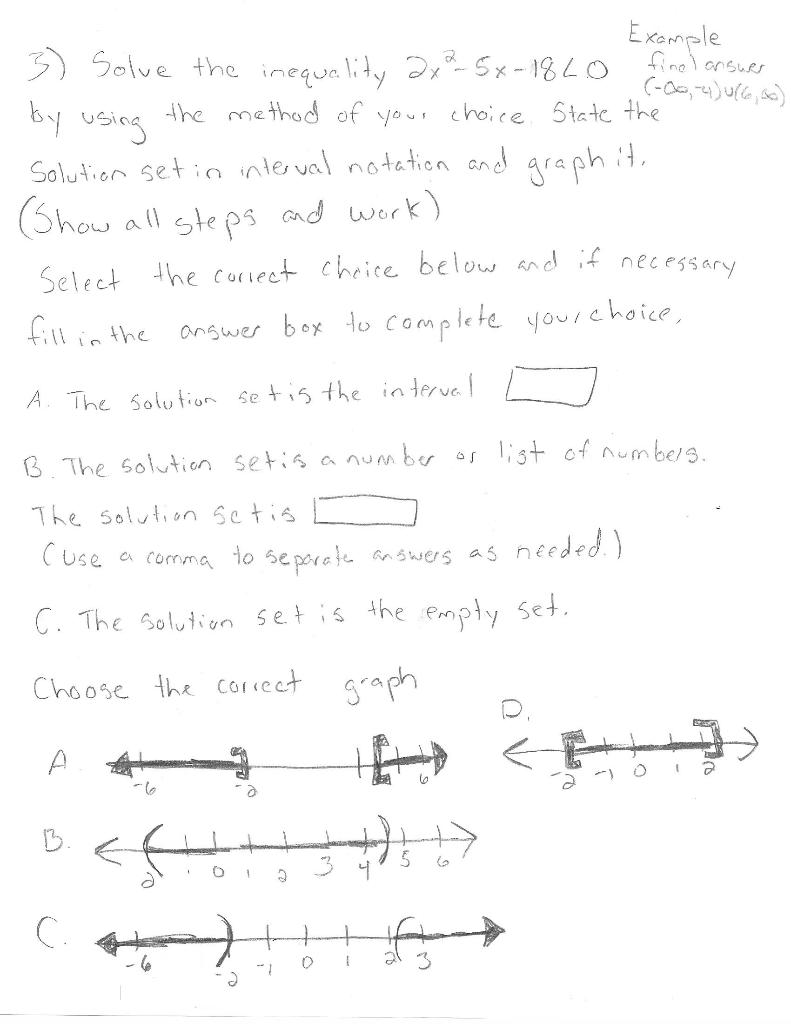 Example
3) Solve the inequality 2x²-5x-18<0 final answer
(-∞,-4)∪(6,∞)
by using the method of your choice. State the
Solution set in interval notation and graph it.
(Show all steps and work)
Select the correct choice below and if necessary
fill in the answer box to complete your choice.
A. The solution set is the interval
B. The solution set is a number or list of numbers.
The solution set is
(Use a comma to separate answers as needed.)
C. The solution set is the empty set.
Choose the correct graph
D.
-2 -1 0 1 2
A
-6 -2 6
B.
2 0 1 2 3 4 5 6
C.
-6 -2 -1 0 1 2 3